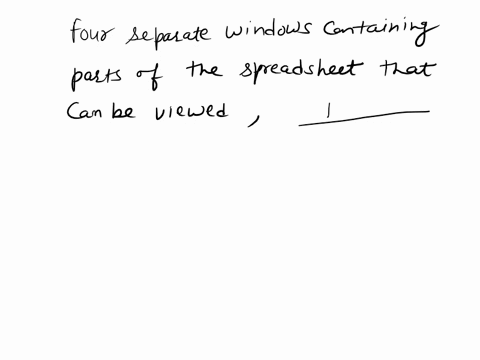 four separate windows containing
parts of the spreadsheet that
Can be viewed ,